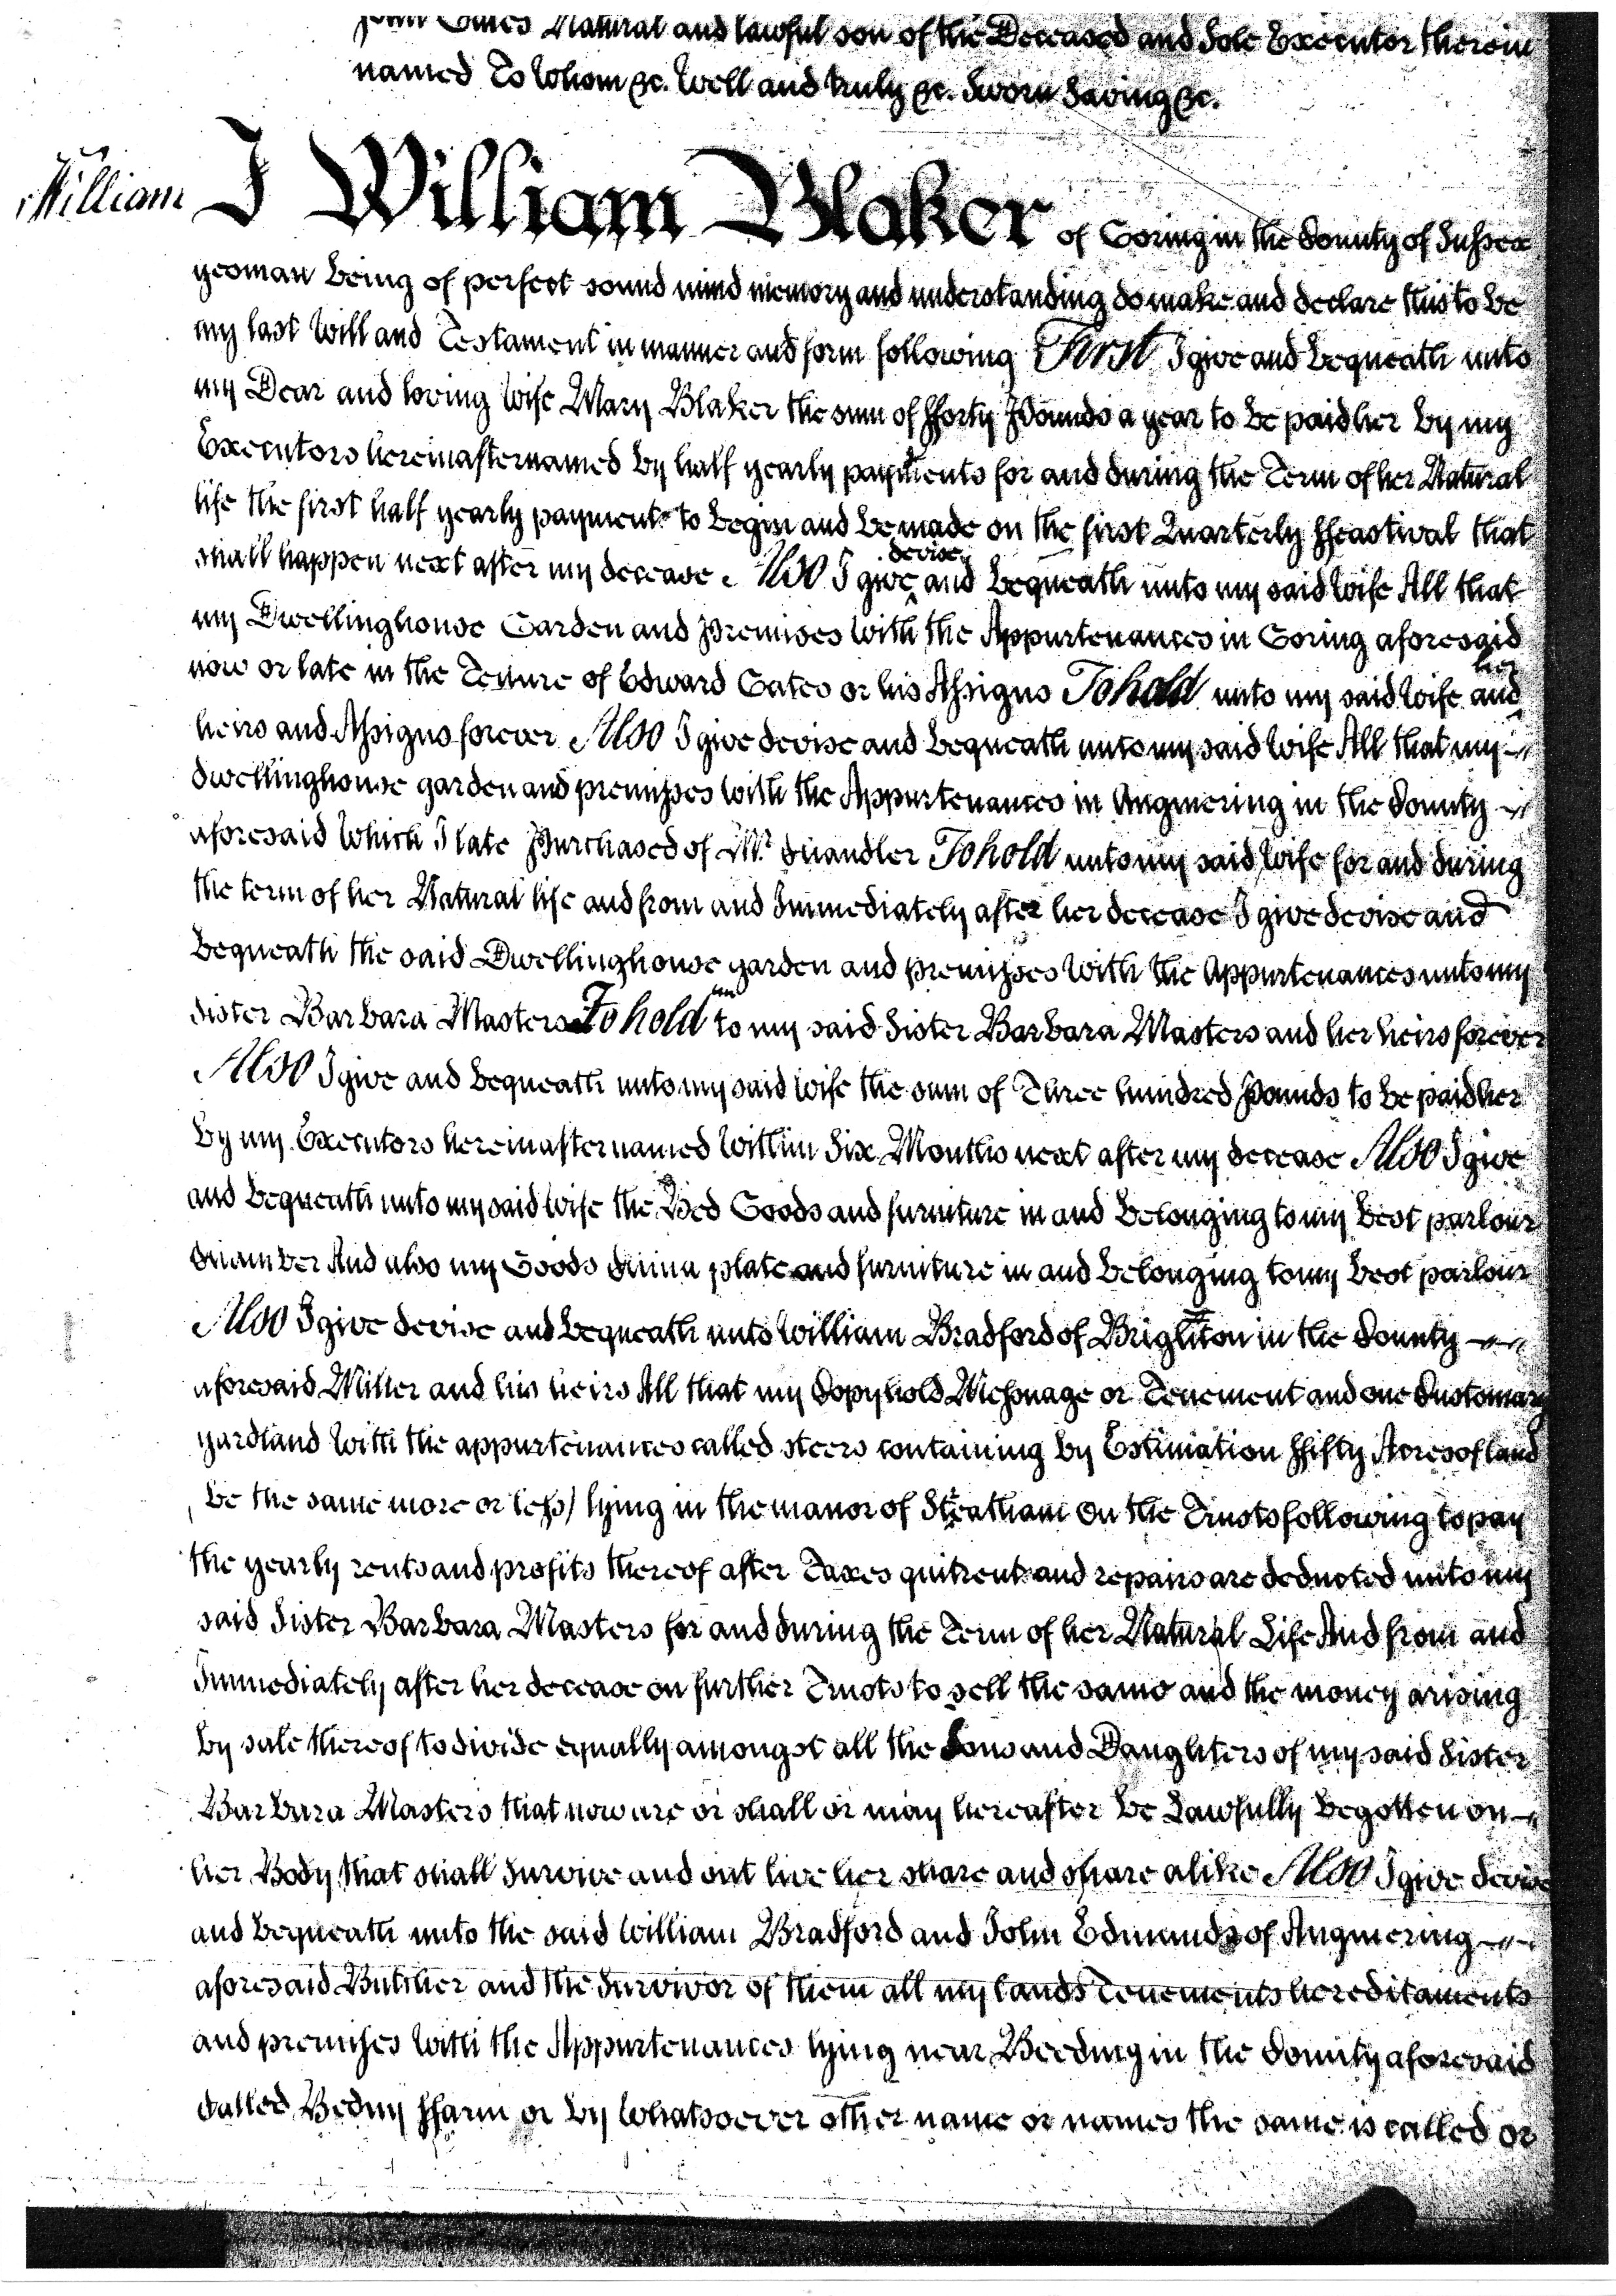 John Oates Natural and lawful son of the Deceased and Sole Executor therein
named To Whom &c. Well and truly &c. Sworn Saving &c.
William
I William Blaker of Goring in the County of Sussex
yeoman being of perfect sound mind memory and understanding do make and declare this to be
my last Will and Testament in manner and form following First I give and bequeath unto
my Dear and loving Wife Mary Blaker the sum of fforty Pounds a year to be paid her by my
Executors hereinafternamed by half yearly payments for and during the Term of her Natural
life the first half yearly payment to begin and be made on the first Quarterly ffeastival that
shall happen next after my decease Also I give devise and bequeath unto my said Wife All that
my Dwellinghouse Garden and Premises with the Appurtenances in Goring aforesaid
now or late in the Tenure of Edward Gates or his Assigns To hold unto my said Wife and her
heirs and Assigns forever Also I give devise and bequeath unto my said Wife All that my
dwellinghouse garden and premisses with the Appurtenances in Angmering in the County
aforesaid which I late Purchased of Mr. Chandler To hold unto my said Wife for and during
the term of her Natural life and from and Immediately after her decease I give devise and
bequeath the said Dwellinghouse garden and premisses with the Appurtenances unto my
Sister Barbara Masters To hold unto my said Sister Barbara Masters and her heirs forever
Also I give and bequeath unto my said Wife the sum of Three hundred Pounds to be paid her
by my Executors hereinafternamed within Six Months next after my decease Also I give
and bequeath unto my said Wife the Bed Goods and furniture in and belonging to my best parlour
Chamber And also my Goods China plate and furniture in and belonging to my best parlour
Also I give devise and bequeath unto William Bradford of Brighton in the County
aforesaid Miller and his heirs All that my Copyhold Messuage or Tenement and one Customary
yardland with the appurtenances called steers containing by Estimation ffifty Acres of land
be the same more or less) lying in the manor of Streatham On the Trusts following to pay
the yearly rents and profits thereof after Taxes quitrents and repairs are deducted unto my
said Sister Barbara Masters for and during the Term of her Natural Life And from and
Immediately after her decease on further Trusts to sell the same and the money arising
by sale thereof to divide equally amongst all the Sons and Daughters of my said Sister
Barbara Masters that now are or shall or may hereafter be Lawfully begotten on
her Body that shall Survive and out live her share and share alike Also I give devise
and bequeath unto the said William Bradford and John Edmunds of Angmering
aforesaid Butcher and the Survivor of them all my lands Tenements hereditaments
and premisses with the Appurtenances lying near Beeding in the County aforesaid
Called Bedny ffarm or by whatsoever other name or names the same is called or